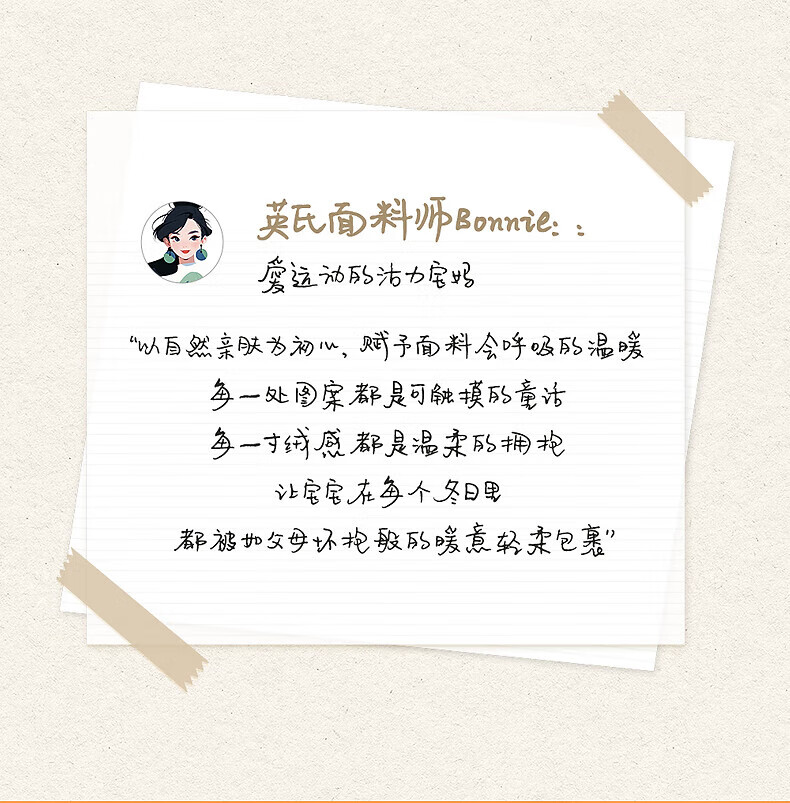 英氏面料师Bonnie：：
爱运动的活力宝妈
“以自然亲肤为初心，赋予面料会呼吸的温暖
每一处图案都是可触摸的童话
每一寸绒感都是温柔的拥抱
让宝宝在每个冬日里
都被如父母怀抱般的暖意轻柔包裹”